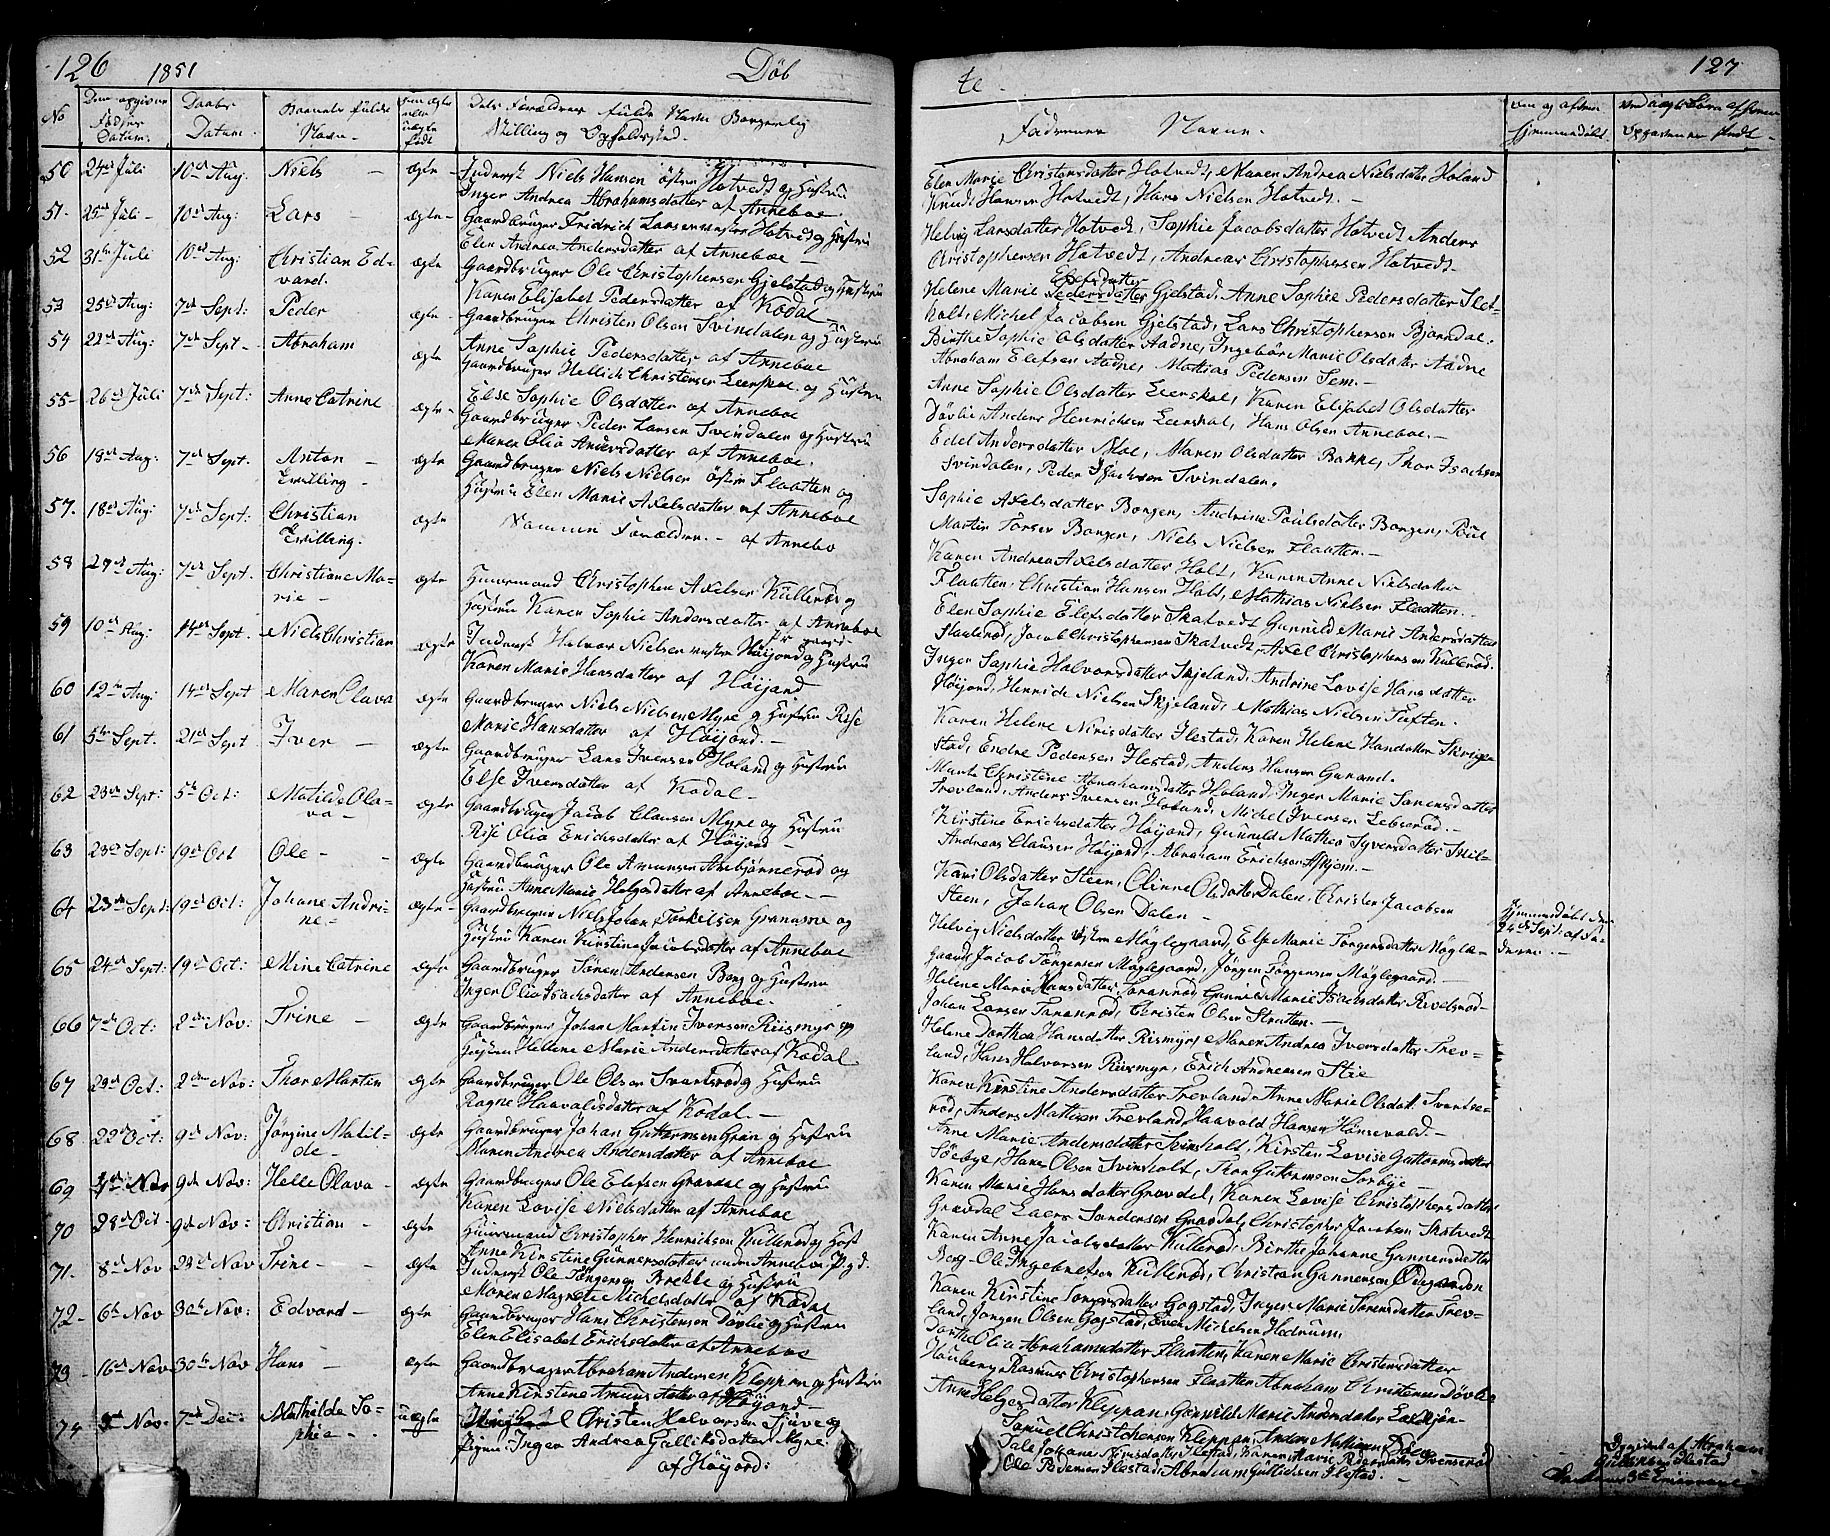 126 1851 Döb
No
Den opgivne Födsels Datum.
Daabs Datum.
Barnets fulde Navn.
om ægte eller uægte födt
Dets Forældres fulde Navn Borgerlig Stilling og Opholdssted.
50 24de Juli 10de Aug. Niels ægte Inderst Niels Hansen östre Hotvedt og Hustru
Inger Andrea Abrahamsdatter af Anneboe.
51 25de Juli 10de Aug: Lars ægte Gaardbruger Fridrich Larsen vestre Hotvedt og Hustru
Elen Andrea Andersdatter af Anneboe
52 31te Juli 10de Aug: Christian Edvard. ægte Gaardbruger Ole Christophersen Gjelstad og Hustru
Karen Elisabet Pedersdatter af Kodal
53 25de Aug: 7de Sept: Peder ægte Gaardbruger Christen Olsen Svindalen og Hustru
Anne Sophie Pedersdatter af Anneboe
54 22de Aug: 7de Sept Abraham ægte Gaardbruger Hellich Christensen Leerskal og Hustru
Else Sophie Olsdatter af Anneboe
55 26de Juli 7de Sept: Anne Catrine ægte Gaardbruger Peder Larsen Svindalen og Hustru
Maren Olia Andersdatter af Anneboe.
56 18de Aug: 7de Sept. Anton Tvilling ægte Gaardbruger Niels Nielsen östre Flaatten og
Hustru Elen Marie Axelsdatter af Anneboe
57. 18de Aug: 7de Sept: Christian Tvilling. ægte Samme Forældre. af Annebo
58 27de Aug: 7de Sept. Christiane Marie ægte Huusmand Christopher Axelsen Kullerød og
Hustru Karen Sophie Andersdatter af Anneboe
59 10de Aug: 14de Sept. Niels Christian ægte Inderst Halvor Nielsen vestre Høijord og Hustru
Karen Marie Hansdatter af Høijord
60 12te Aug: 14de Sept Maren Olava ægte Gaardbruger Niels Nielsen Myre og Hustru Rise
Marie Hansdatter af Høijord.
61 5te Sept. 21de Sept Iver ægte Gaardbruger Lars Iversen Holand og Hustru
Else Iversdatter af Kodal
62 23de Sept: 5te Oct: Matilde Olava ægte Gaardbruger Jacob Clausen Myre og Hustru
Rise Olia Erichsdatter af Høijord
63 23de Sept: 19de Oct Ole ægte Gaardbruger Ole Amunsen Askebjønnerød og
Hustru Anne Marie Helgesdatter af Anneboe.
64 23de Sept: 19de Oct: Johane Andrine ægte Gaardbruger Niels Johan Torkelsen Granasve og
Hustru Karen Kirstine Jacobsdatter af Anneboe
65 24de Sept: 19de Oct: Mine Catrine ægte Gaardbruger Sören Andersen Borg og Hustru
Inger Olia Isachsdatter af Anneboe.
66 7de Oct: 2den Nov: Trine ægte Gaardbruger Johan Martin Iversen Riismyr og
Hustru Hellene Marie Andersdatter af Kodal
67 29de Oct: 2den Nov: Thor Martin ægte Gaardbruger Ole Olsen Svartsrød og Hustru
Ragne Haavaldsdatter af Kodal.
68 22de Oct: 9de Nov: Jørgine Matilde ægte Gaardbruger Johan Guttormsen Gran og Hustru
Maren Andrea Andersdatter af Anneboe
69 4de Nov 9de Nov: Helle Olava ægte Gaardbruger Ole Elefsen Gravdal og Hustru
Karen Lovise Nielsdatter af Anneboe
70 28de Oct 9de Nov: Christian ægte Huusmand Christopher Henriksen Kullerød og Hust
Anne Kirstine Gunnersdatter under Anneboe Pr.gd.
71. 8de Nov 23de Nov Trine ægte Inderst Ole Törgersen Brekke og Hustru
Maren Magrete Michelsdatter af Kodal
72 6te Nov 30te Nov: Edvard ægte Gaardbruger Hans Christensen Døvlie og Hustru
Elen Elisabet Erichsdatter af Anneboe
73 16de Nov 30te Nov Hans ægte Gaardbruger Abraham Andersen Kleppan og Hustru
Anne Kirstine Amundsdatter af Høijord
74 Nov. 7de Dec: Mathilde Sophie uægte Christen Halvorsen Tjuve og
Pigen Inger Andrea Gulliksdatter Myre
af Høijord:
te. 127
Faddernes Navne.
om og af hvem hjemmedöbt
Elen Marie Christensdatter Hotvedt, Maren Andrea Nielsdatter Holand
Knud Hansen Hotvedt, Hans Nielsen Hotvedt.
Helvig Larsdatter Hotvedt, Sophie Jacobsdatter Hotvedt Anders
Christophersen Hotvedt, Andreas Christophersen Hotvedt.
Elefsdatter
Helene Marie Pedersdatter Gjelstad, Anne Sophie Pedersdatter Slet-
holt, Michel Jacobsen Gjelstad, Lars Christophersen Bjørndal.
Birthe Sophie Olsdatter Aadne, Ingebør Marie Olsdatter Aadne
Abraham Elefsen Aadne, Mathias Pedersen Sem.
Anne Sophie Olsdatter Leerskal, Karen Elisabet Olsdatter
Døvlie Anders Henrichsen Leerskal, Hans Olsen Anneboe.
Edel Andersdatter Moe, Maren Olsdatter Bakke, Thor Isachsen
Svindalen, Peder Isachsen Svindalen.
Sophie Axelsdatter Borgen, Andrine Poulsdatter Borgen, Poul
Martin Torger Borgen, Niels Nielsen Flaatten.
Karen Andrea Axelsdatter Holt, Karen Anne Nielsdatter
Flaatten, Christian Hansen Holt, Mathias Nielsen Flaatten.
Elen Sophie Elefsdatter Skatvedt Gunnild Marie Andersdatter
Skatvedt, Axel Christophersen Kullerød.
Inger Sophie Halvorsdatter Skjeland, Andrine Lovise Hansdatter
Høijord, Henrich Nielsen Skjeland, Mathias Nielsen Tuften.
Karen Helene Nirisdatter Ilestad, Karen Helene Hansdatter Skrige-
stad, Endre Pedersen Ilestad, Anders Hansen Gusand.
Marte Christine Abrahamsdatter Holand, Inger Marie Sørensdatter
Trevland, Anders Iversen Holand, Michel Iversen Lebserød.
Kirstine Erichsdatter Høijord, Gunnild Mathea Syversdatter
Andreas Clausen Høijord, Abraham Erichsen Askjem.
Kari Olsdatter Steen, Olinne Olsdatter Dalen, Christen Jacobsen
Steen, Johan Olsen Dalen
Helvig Nielsdatter østre Møglegaard, Else Marie Törgersdatter Møgle-
gaard Jacob Törgersen Møglegaard, Jörgen Törgersen Møglegaard.
Hjemmedøbt den 24de Sept: af
Helene Marie Hansdatter Taranrød, Gunild Marie Isachsdatter
Johan Larsen Taranrød, Christen Olsen Skatten.
Helene Dorthea Hansdatter Riismyr, Maren Andrea Iversdatter Trev-
land, Hans Halvorsen Riismyr, Erich Andersen Stie
Karen Kirstine Andersdatter Trevland, Anne Marie Olsdatt. Svartse-
rød, Anders Mathisen Trevland Haavald Hansen Hønsevald.
Anne Marie Andersdatter Svinholt, Kirsten Lovise Guttormsdatter
Søebye, Hans Olsen Svinholt, Thor Guttormsen Sorbye
Karen Marie Hansdatter Gravdal, Karen Lovise Christophersdatter
Gravdal Laers Sandersen Gravdal, Christopher Jacobsen Skatvedt
Karen Anne Jacobsdatter Kullerød, Birthe Johanne Gunnersdatter
Bog Ole Ingebretsen Kullerød, Christian Gunnersen Ødegaarden
Karen Kirstine Torgersdatter Gogstad, Inger Marie Sørensdatter Trev-
land, Jørgen Olsen Gogstad, Even Michelsen Hedrum.
Dorthe Olia Abrahamsdatter Flaatten, Karen Marie Christensdatter
Houberg Rasmus Christophersen Flaatten Abraham Christensen Døvlie
Anne Helgesdatter Kleppan, Gunnild Marie Andersdatter
Samuel Christophersen Kleppan, Anders Mathisen
Ole Pedersen Ilestad, Abraham Gulliksen Ilestad.
Opgivet af Abraham
Gulliksen Ilestad